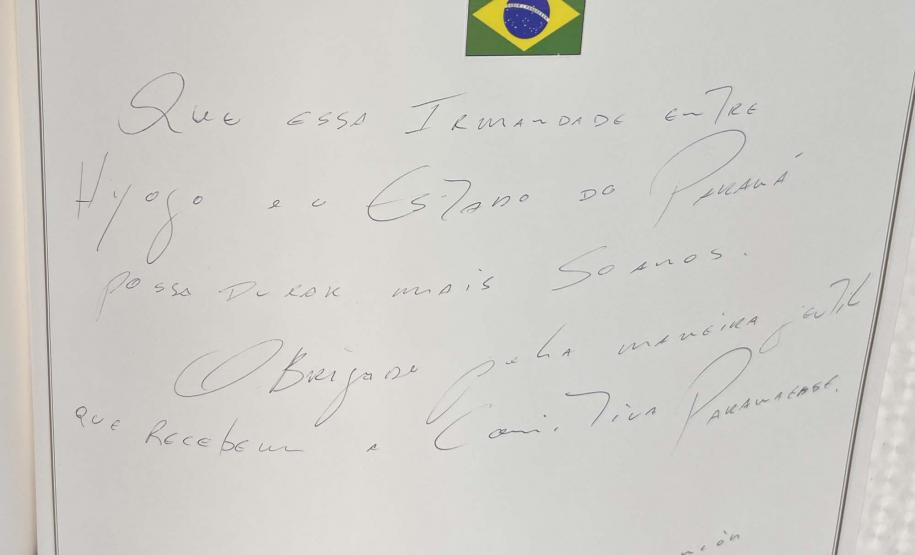 Que essa Irmandade entre
Hyogo e o Estado do Paraná
possa durar mais 50 anos.
Obrigado pela maneira gentil
que recebem a Comitiva Paranaense.